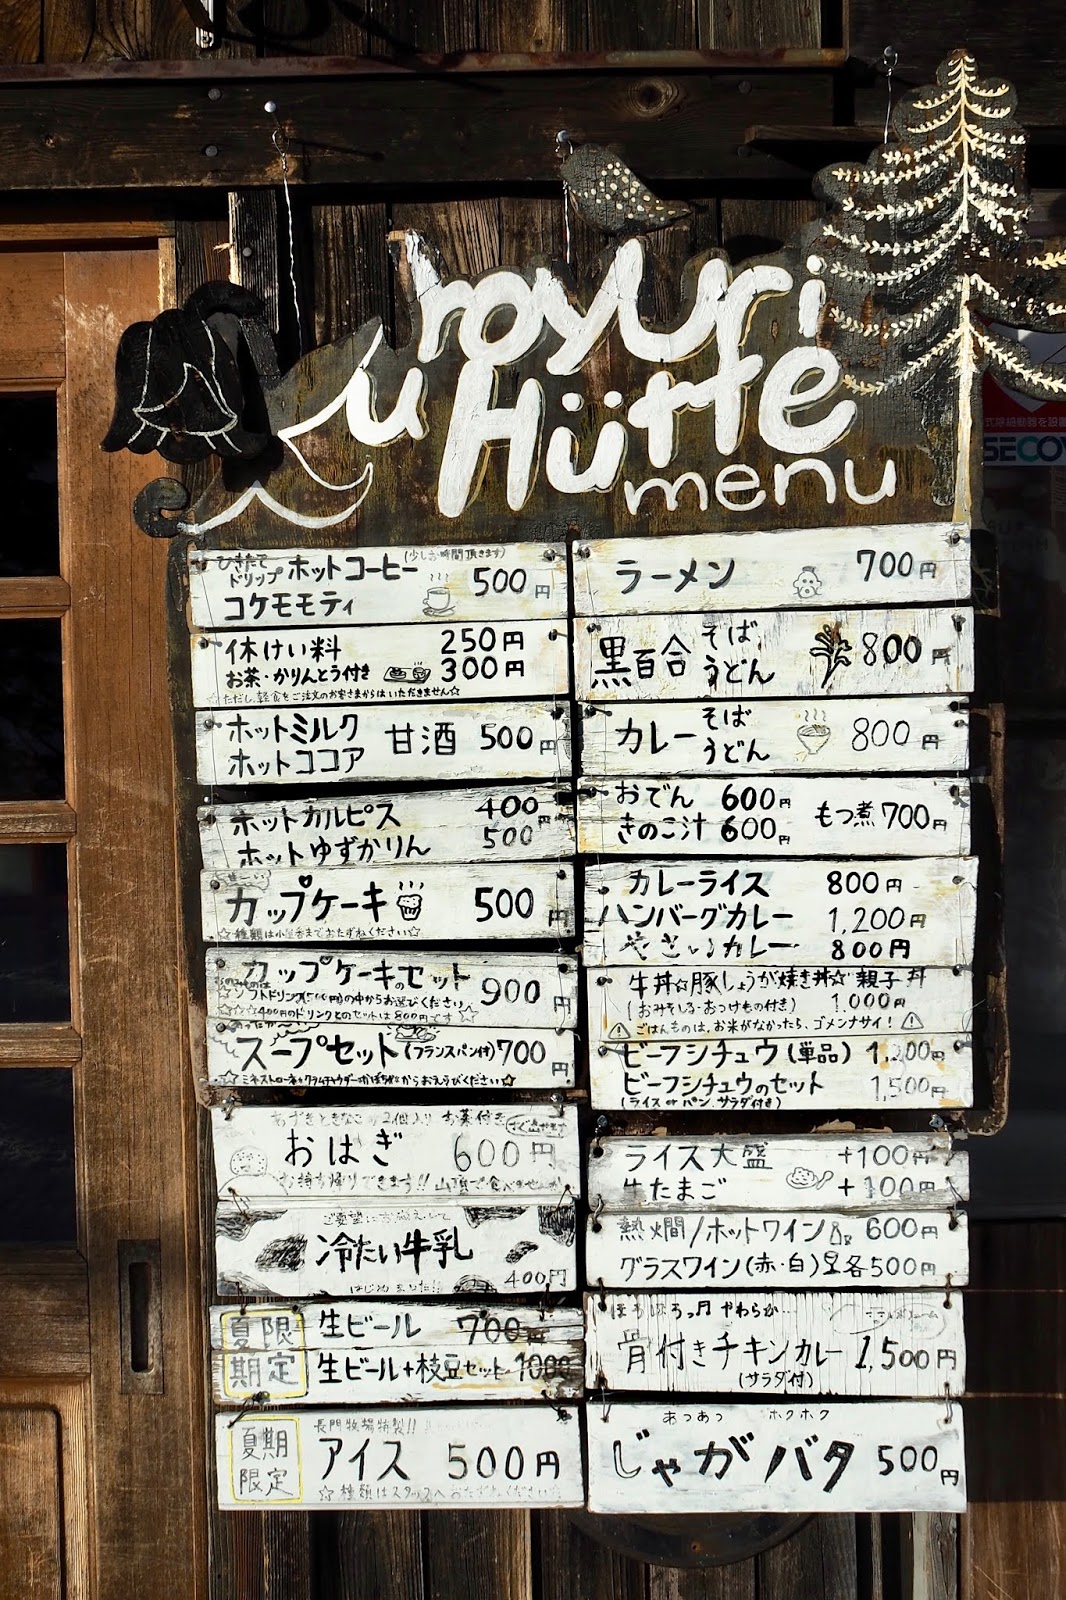 Kuroyuri
Hütte
menu
ひきたて
ドリップ ホットコーヒー (少しお時間頂きます)
コケモモティ 500円
休けい料 250円
お茶・かりんとう付き 300円
☆ただし、軽食をご注文のお客さまからはいただきません☆
ホットミルク
ホットココア 甘酒 500円
ホットカルピス 400円
ホットゆずかりん 500
カップケーキ 500円
☆種類は小屋番までおたずねください☆
カップケーキのセット 900円
☆ソフトドリンク(500円)の中からお選びください
☆☆☆400円のドリンクとのセットは800円です☆
スープセット(フランスパン付) 700円
☆ミネストローネ・クラムチャウダー・かぼちゃからおえらびください☆
あずきときなこの2個入り お茶付き
おはぎ 600円
お持ち帰りできます!! 山頂で食べませんか
冷たい牛乳
400円
夏期限定 生ビール 700円
生ビール+枝豆セット 1000
長門牧場特製!!
夏期限定 アイス 500円
☆種類はスタッフへおたずねください
ラーメン 700円
黒百合 そば
うどん 800円
カレー そば
うどん 800円
おでん 600円
きのこ汁 600円 もつ煮 700円
カレーライス 800円
ハンバーグカレー 1,200円
やさいカレー 800円
牛丼☆豚しょうが焼き丼☆親子丼
(おみそしる・おつけもの付き) 1,000円
⚠ごはんものは、お米がなかったら、ゴメンナサイ!⚠
ビーフシチュウ(単品) 1,200円
ビーフシチュウのセット 1,500円
(ライス or パン、サラダ付き)
ライス大盛 +100円
生たまご +100円
熱燗/ホットワイン 600円
グラスワイン(赤・白) 各500円
ほろほろっ やわらか…
骨付きチキンカレー 1,500円
(サラダ付)
あつあつ ホクホク
じゃがバタ 500円
SECO